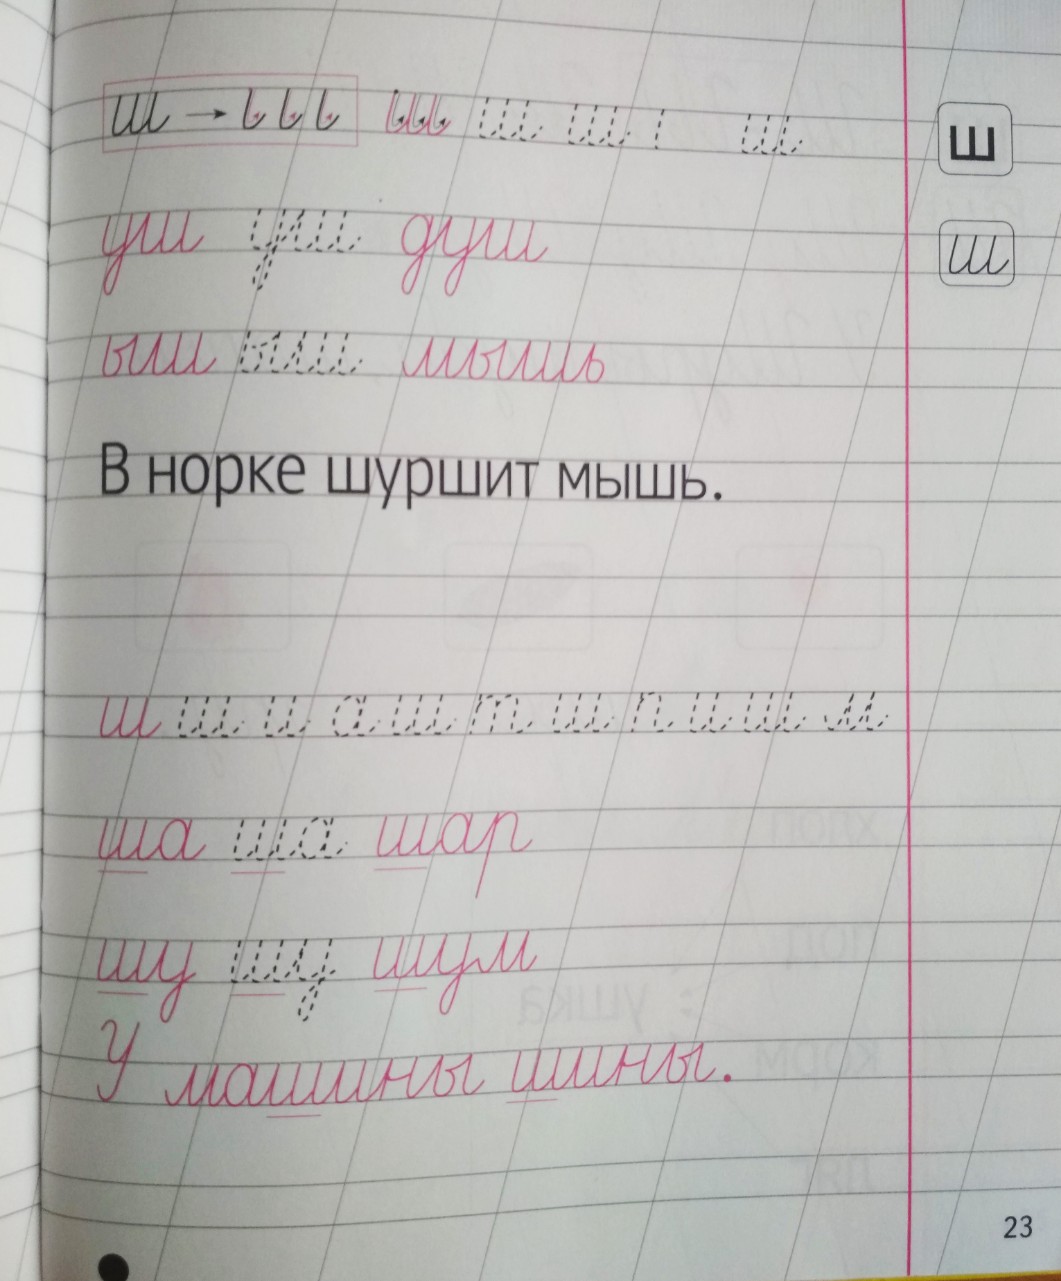 ш → ш ш ш ш ш
ш
уш уш душ
ш
ыш ыш мышь
В норке шуршит мышь.
ш ш и а ш т ш п и ш м
ша ша шар
шу шу шум
У машины шины.
23